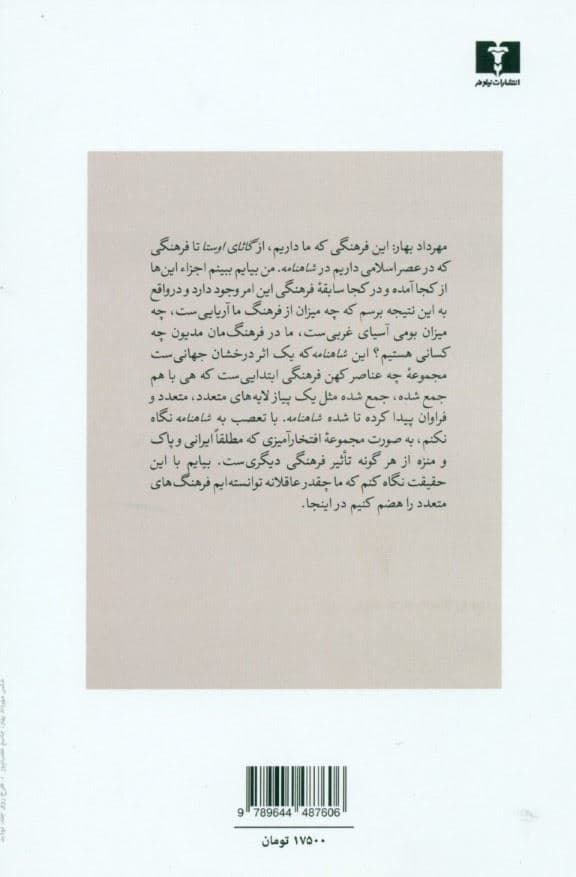 انتشارات نیلوفر
مهرداد بهار: این فرهنگی که ما داریم، از گاثای اوستا تا فرهنگی
که در عصر اسلامی داریم در شاهنامه. من بیایم ببینم اجزاء این‌ها
از کجا آمده و در کجا سابقهٔ فرهنگی این امر وجود دارد و درواقع
به این نتیجه برسم که چه میزان از فرهنگ ما آریایی‌ست، چه
میزان بومی آسیای غربی‌ست، ما در فرهنگ‌مان مدیون چه
کسانی هستیم؟ این شاهنامه که یک اثر درخشان جهانی‌ست
مجموعهٔ چه عناصر کهن فرهنگی ابتدایی‌ست که هی با هم
جمع شده، جمع شده مثل یک پیاز لایه‌های متعدد، متعدد و
فراوان پیدا کرده تا شده شاهنامه. با تعصب به شاهنامه نگاه
نکنم، به صورت مجموعهٔ افتخارآمیزی که مطلقاً ایرانی و پاک
و منزه از هر گونه تأثیر فرهنگی دیگری‌ست. بیایم با این
حقیقت نگاه کنم که ما چقدر عاقلانه توانسته‌ایم فرهنگ‌های
متعدد را هضم کنیم در اینجا.
9 789644 487606
۱۷۵۰۰ تومان